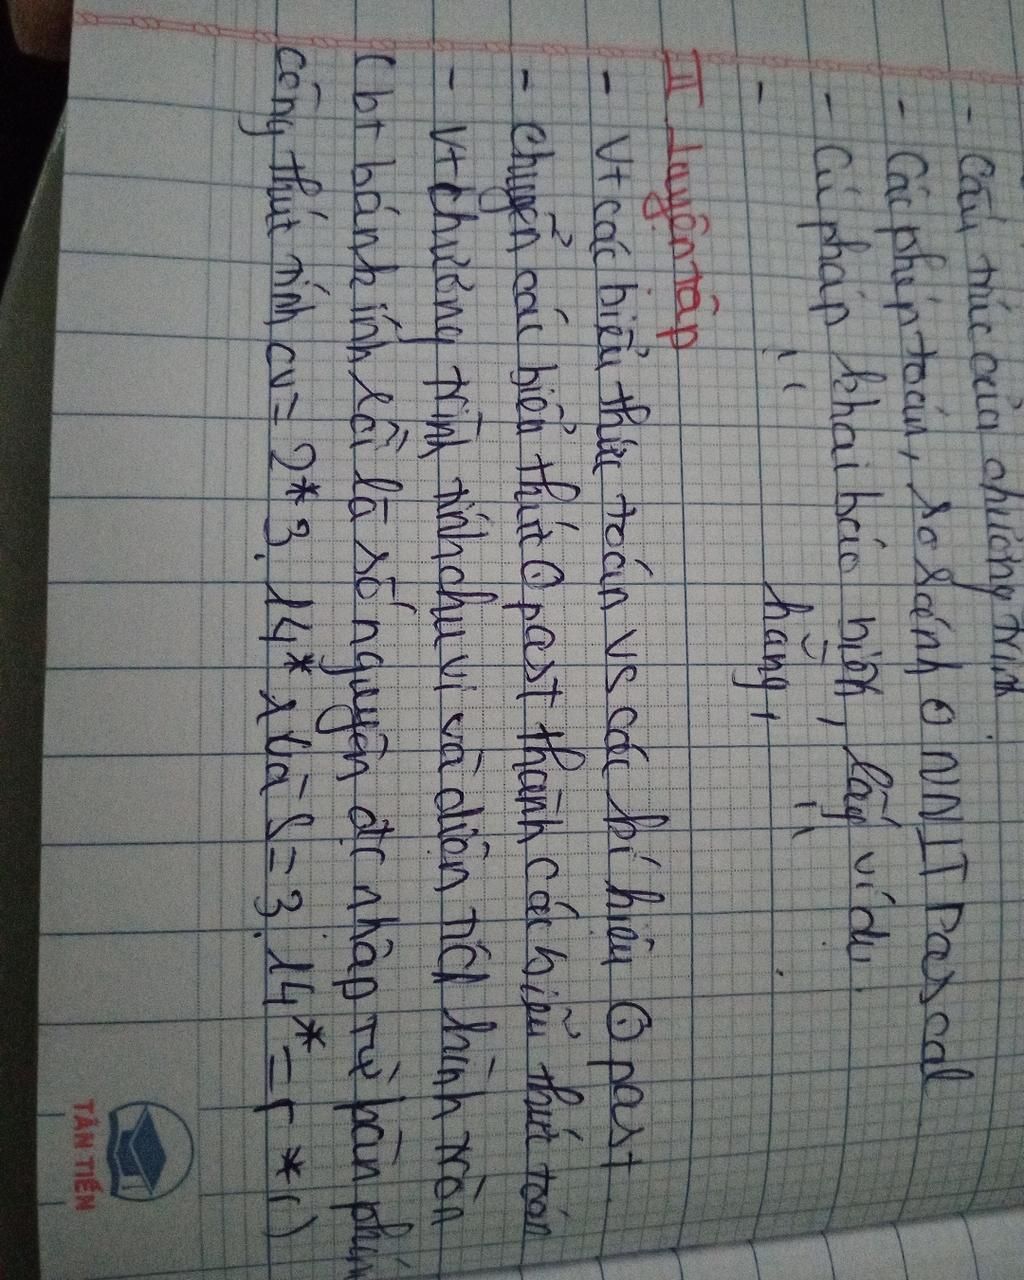 - Cấu trúc của chương trình
- Các phép toán, so sánh ở NNLT Pascal
- Cú pháp khai báo biến, lấy ví dụ.
- " hằng, "
II Luyện tập
- Vt các biểu thức toán vs các kí hiệu ⊙ past
- Chuyển các biểu thức ⊙ past thành các biểu thức toán
- Vt chương trình tính chu vi và diện tích hình tròn
(bt bánh kính lối là số nguyên đc nhập từ bàn phím
công thức tính cv = 2*3.14*r và S = 3.14*=r*r)
TÂN TIẾN